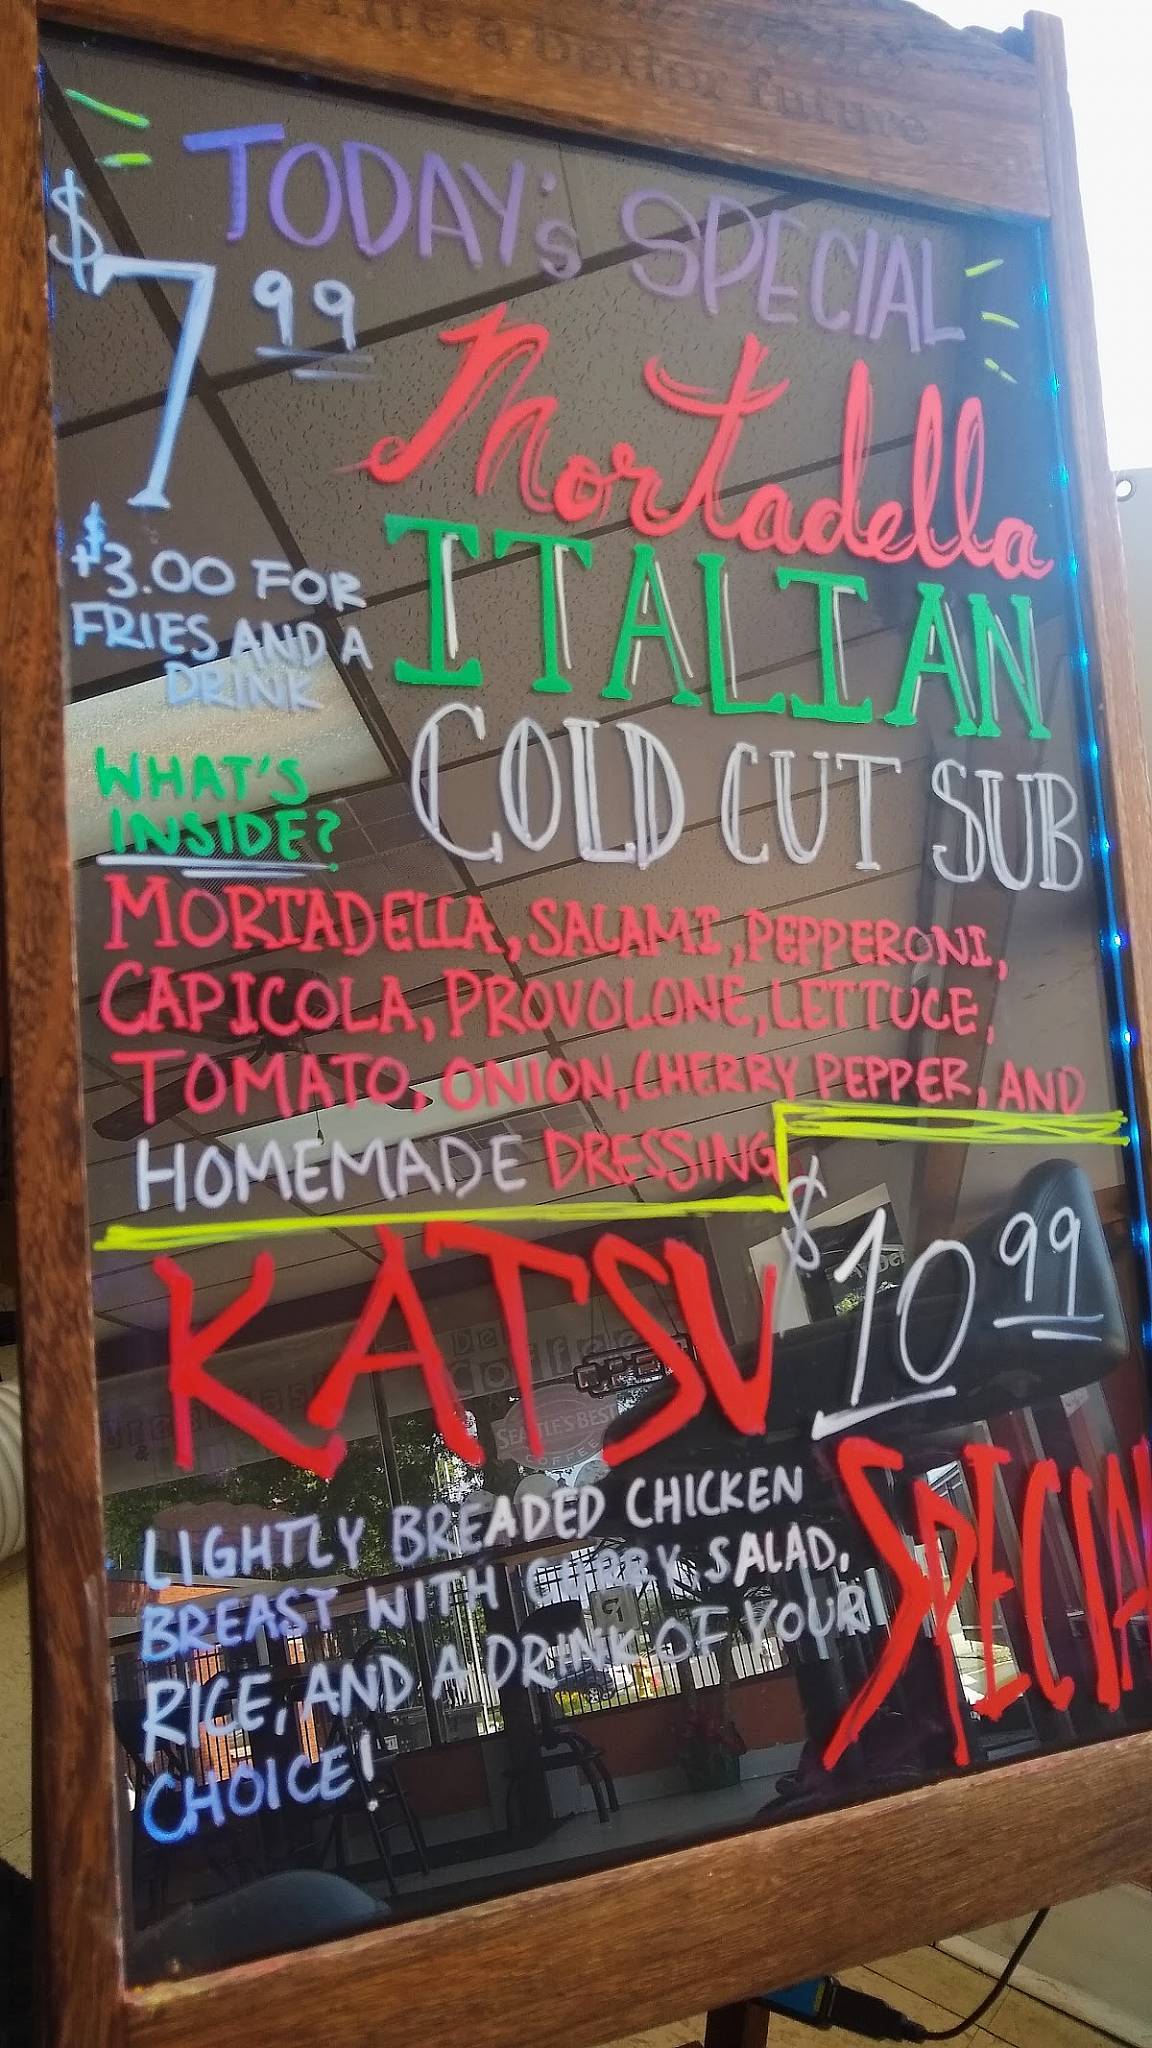 a better future
TODAY's SPECIAL
$7.99
Mortadella
ITALIAN
COLD CUT SUB
+$3.00 FOR
FRIES AND A
DRINK
WHAT'S
INSIDE?
MORTADELLA, SALAMI, PEPPERONI,
CAPICOLA, PROVOLONE, LETTUCE,
TOMATO, ONION, CHERRY PEPPER, AND
HOMEMADE DRESSING
KATSU
$10.99
SPECIAL
LIGHTLY BREADED CHICKEN
BREAST WITH CURRY, SALAD,
RICE, AND A DRINK OF YOUR
CHOICE!
SEATTLE'S BEST
COFFEE